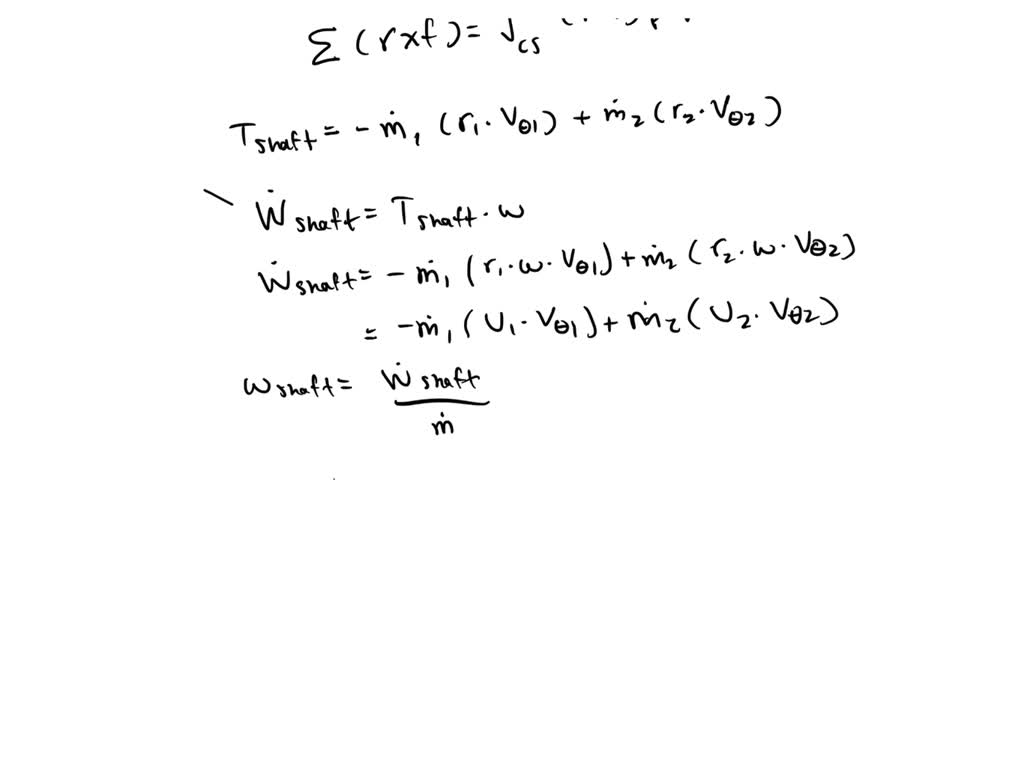 Σ (r×f) = ∫cs
Tshaft = - ṁ1 (r1 · Vθ1) + ṁ2 (r2 · Vθ2)
Ẇshaft = Tshaft · w
Ẇshaft = - ṁ1 (r1 · w · Vθ1) + ṁ2 (r2 · w · Vθ2)
= - ṁ1 (U1 · Vθ1) + ṁ2 (U2 · Vθ2)
wshaft = Ẇshaft / ṁ